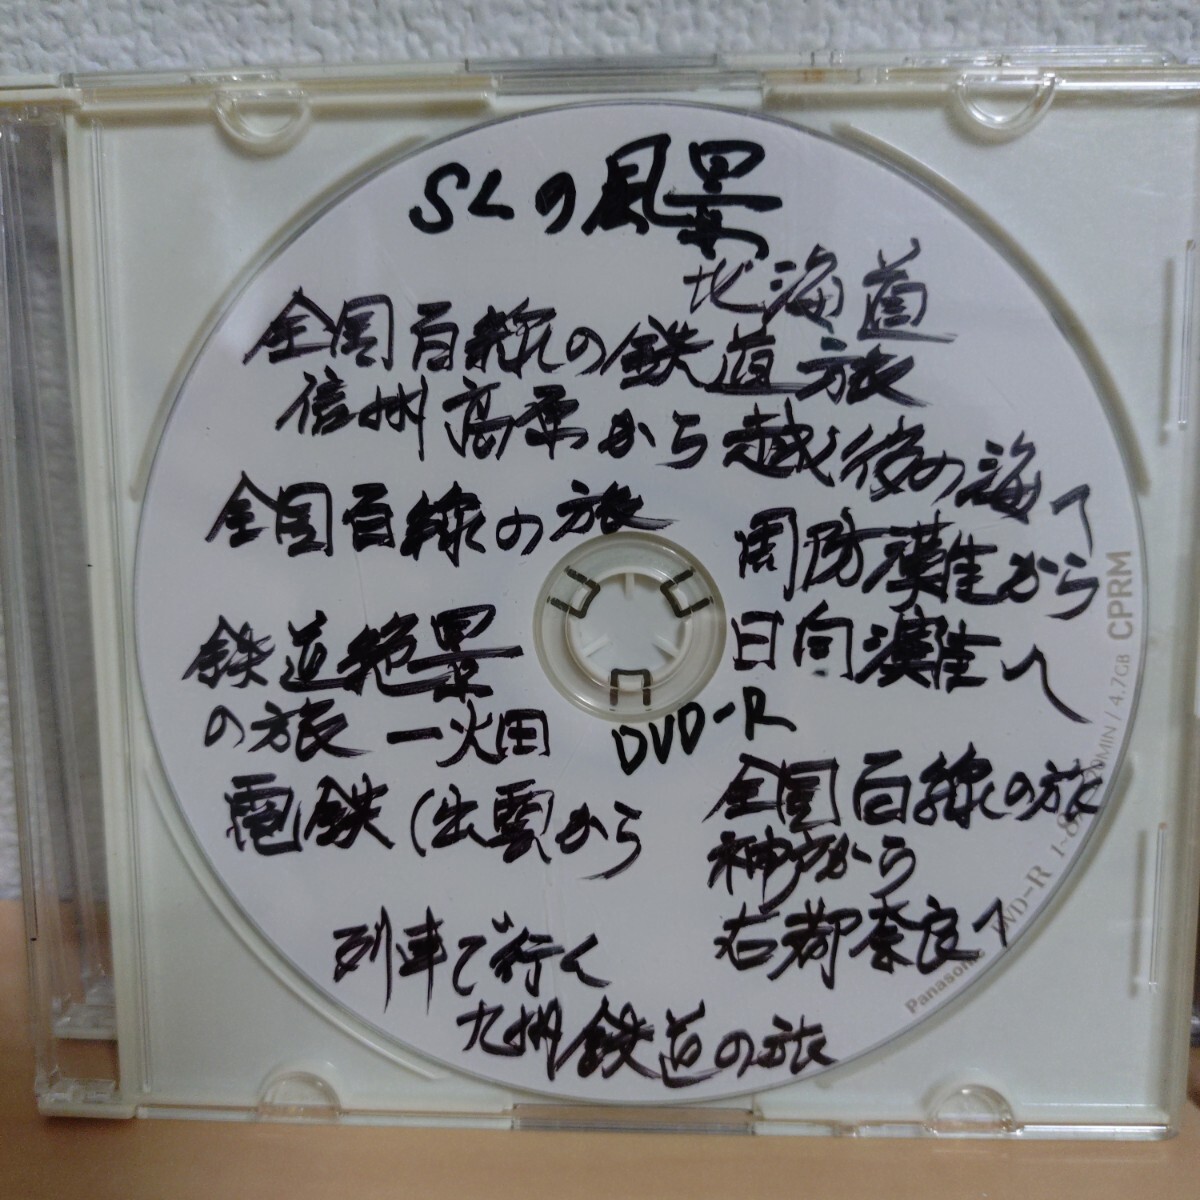 SLの風景
北海道
全国百線の鉄道旅
信州高原から越後の海へ
全国百線の旅
周防灘から
日向灘へ
鉄道絶景
の旅 一火田
電鉄(出雲から
DVD-R
全国百線の旅
神戸から
古都奈良へ
列車で行く
九州鉄道の旅
Panasonic DVD-R 1-8X 120MIN / 4.7GB CPRM